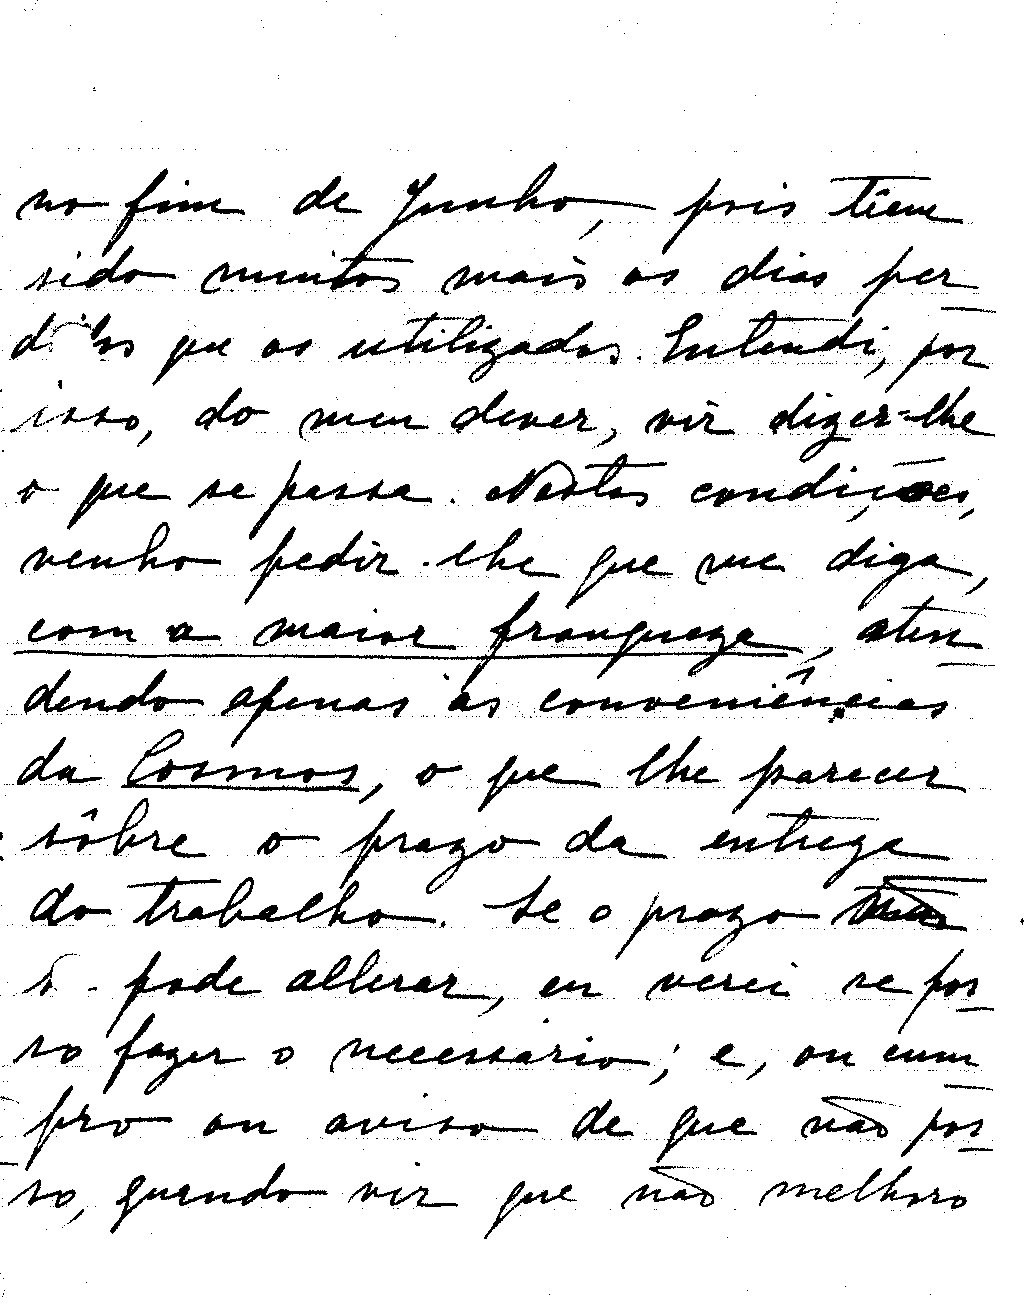 no fim de Junho, pois têem
sido muitos mais os dias per
didos que os utilizados. Entendi, por
isso, do meu dever, vir dizer-lhe
o que se passa. Nestas condições,
venho pedir-lhe que me diga,
com a maior franqueza, aten
dendo apenas às conveniências
da Cosmos, o que lhe parecer
sôbre o prazo da entrega
do trabalho. Se o prazo não
se pode alterar, eu verei se pos
so fazer o necessário; e, ou cum
pro ou aviso de que não pos
so, quando vir que não melhoro